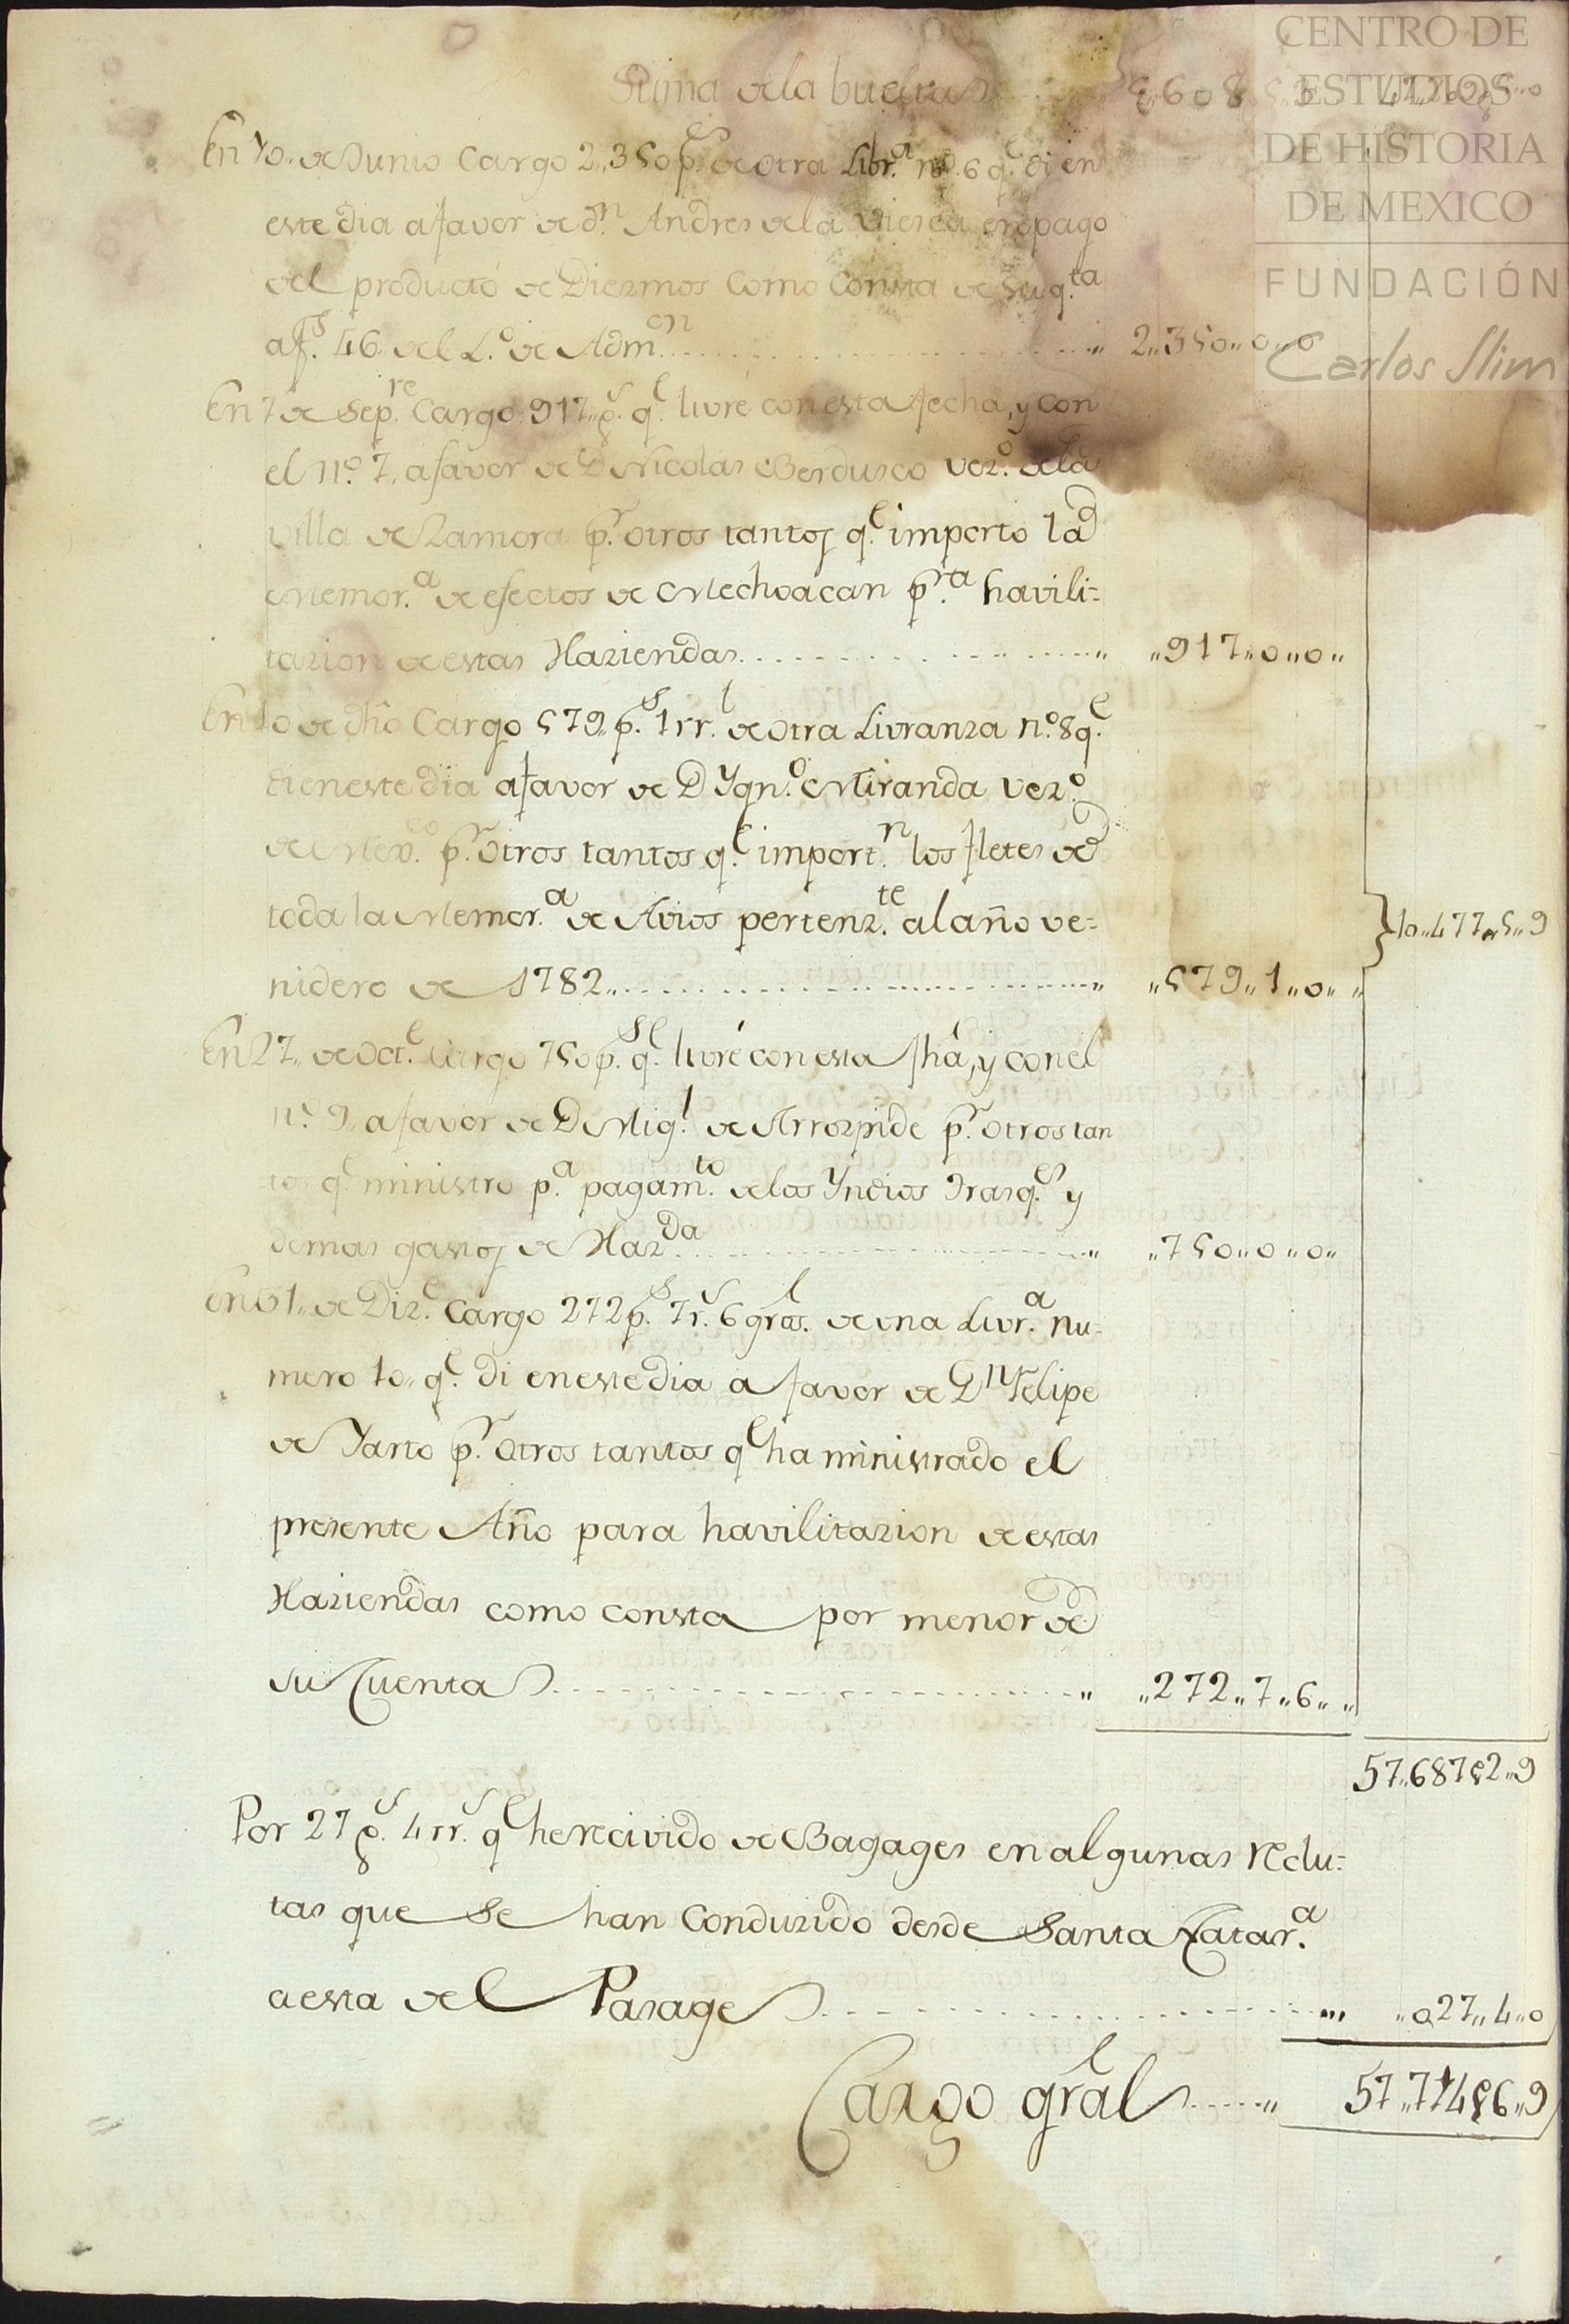 CENTRO DE
ESTUDIOS
DE HISTORIA
DE MEXICO
FUNDACIÓN
Carlos Slim
Suma de la buelta 5,,608
En 10,, de Junio Cargo 2,,350 p.s de otra Libr.a n.o 6 q.e di en
este dia a favor de d.n Andres de la Viesca en pago
del producto de Diezmos Como Consta de su q.ta
a f.s 46 del L.o de Adm.en ,, 2,,350,,0,,0
En 7 de Sep.re Cargo 917,, p.s q.e livré con esta fecha, y con
el n.o 7,, a favor de D Nicolas Berdusco vez.o de la
villa de Zamora p.r otros tantos q.e importo la
Memor.a de efectos de Mechoacan p.ra havili=
tazion de estas Haziendas ,, ,,917,,0,,0,,
En 10 de dho Cargo 579,, p.s 1 rr.l de otra Livranza n.o 8 q.e
di en este dia a favor de D Ygn.o Miranda vez.o
de Mex.co p.r otros tantos q.e import.n los fletes de
toda la Memor.a de Avios pertenz.te al año ve=
nidero de 1782,, ,, ,,579,,1,,0,,
} 10,,477,,5,,9
En 27,, de Oct.e Cargo 750 p.s q.e livré con esta fha, y con el
n.o 9,, a favor de D Mig.l de Arrozpide p.r otros tan
tos q.e ministro p.a pagam.to de los Yndios Trasq.es y
demas gastos de Haz.da ,, ,,750,,0,,0,,
En 31,, de Diz.e Cargo 272 p.s 7 r.s 6 gros. de una Livr.a nu=
mero 10,, q.e di en este dia a favor de D.n Felipe
de Yarto p.r otros tantos q.e ha ministrado el
presente Año para havilitazion de estas
Haziendas como consta por menor de
su Cuenta ,, ,,272,,7,,6,,
57,,687 p 2,,9
Por 27 p.s 4 rr.s q.e he recivido de Bagages en algunas reclu=
tas que se han Conduzido desde Santa Catar.a
a esta del Pasage ,,, ,,027,,4,,0
Cargo gral ,, 57,,714 p 6,,9